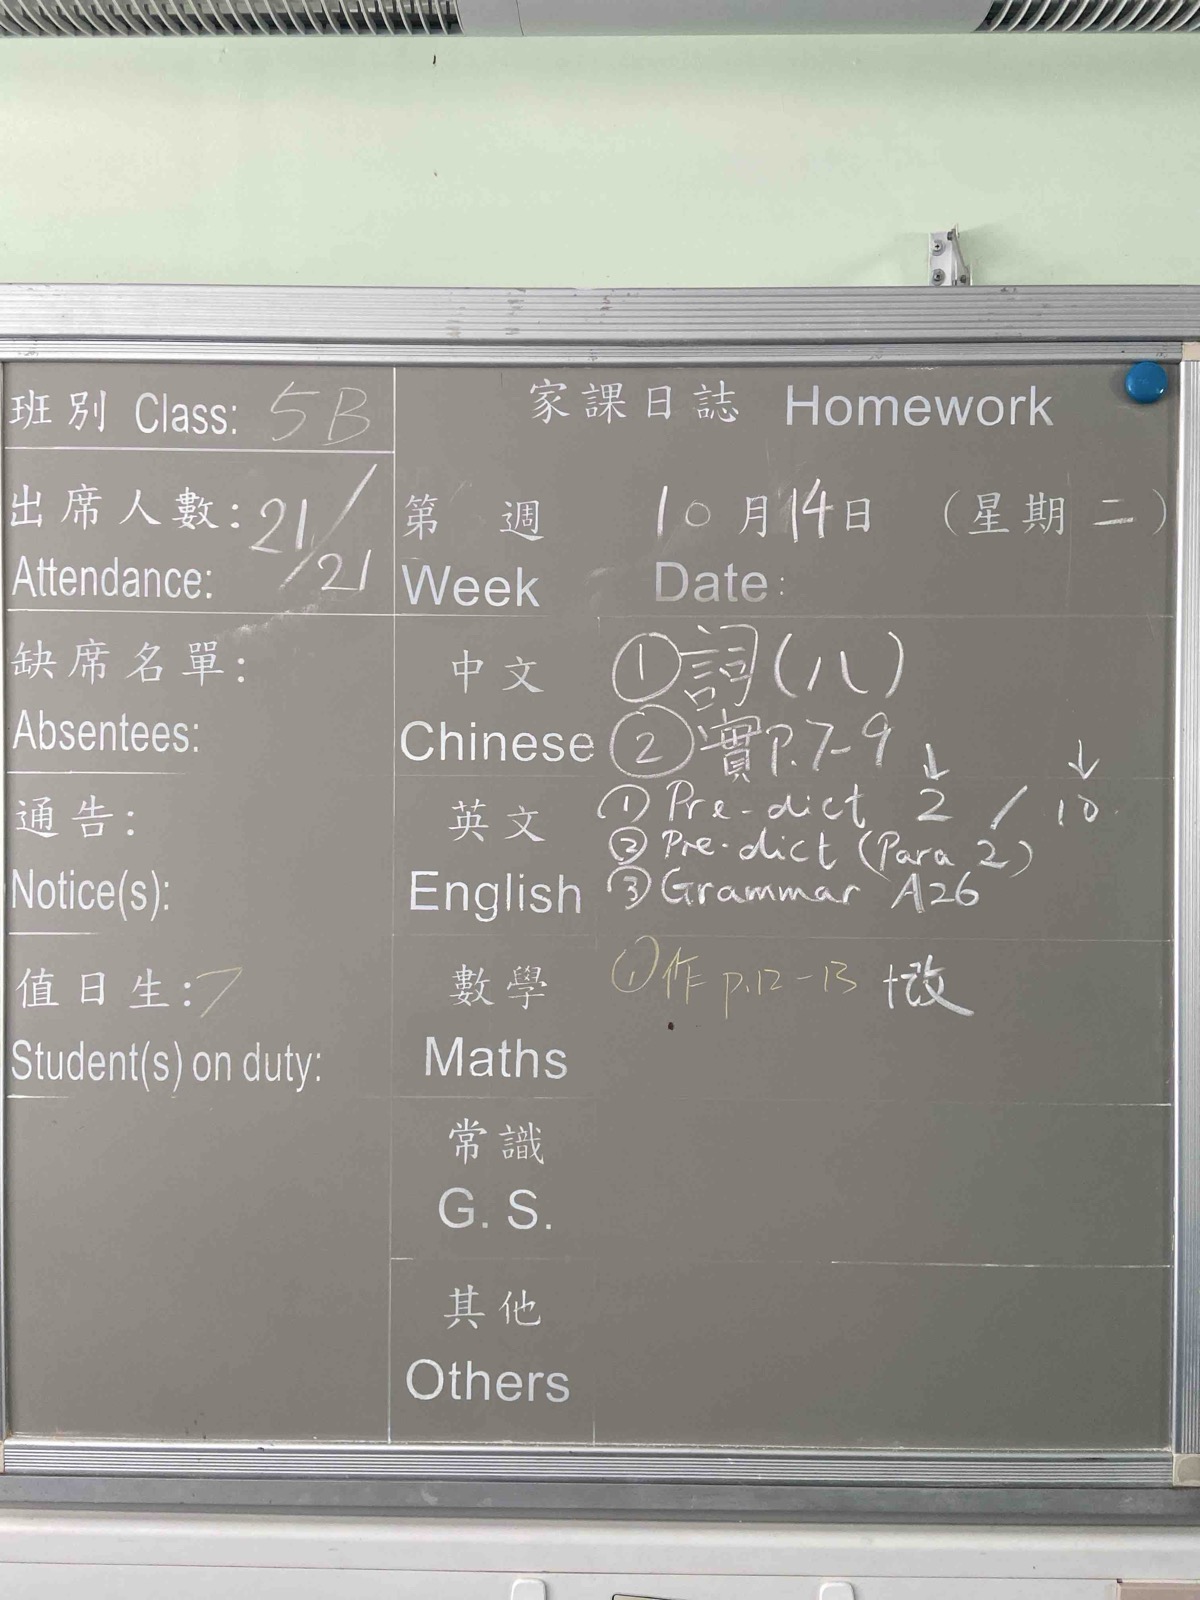 班別 Class: 5B
出席人數: 21/21
Attendance:
缺席名單:
Absentees:
通告:
Notice(s):
值日生: 7
Student(s) on duty:
家課日誌 Homework
第 週 10月14日 (星期二)
Week Date:
中文 ①詞(八)
Chinese ②實P.7-9
↓ ↓
英文 ① Pre-dict 2 / 10
② Pre-dict (Para 2)
English ③ Grammar A26
數學 ①作 p.12-13 +改
Maths
常識
G. S.
其他
Others